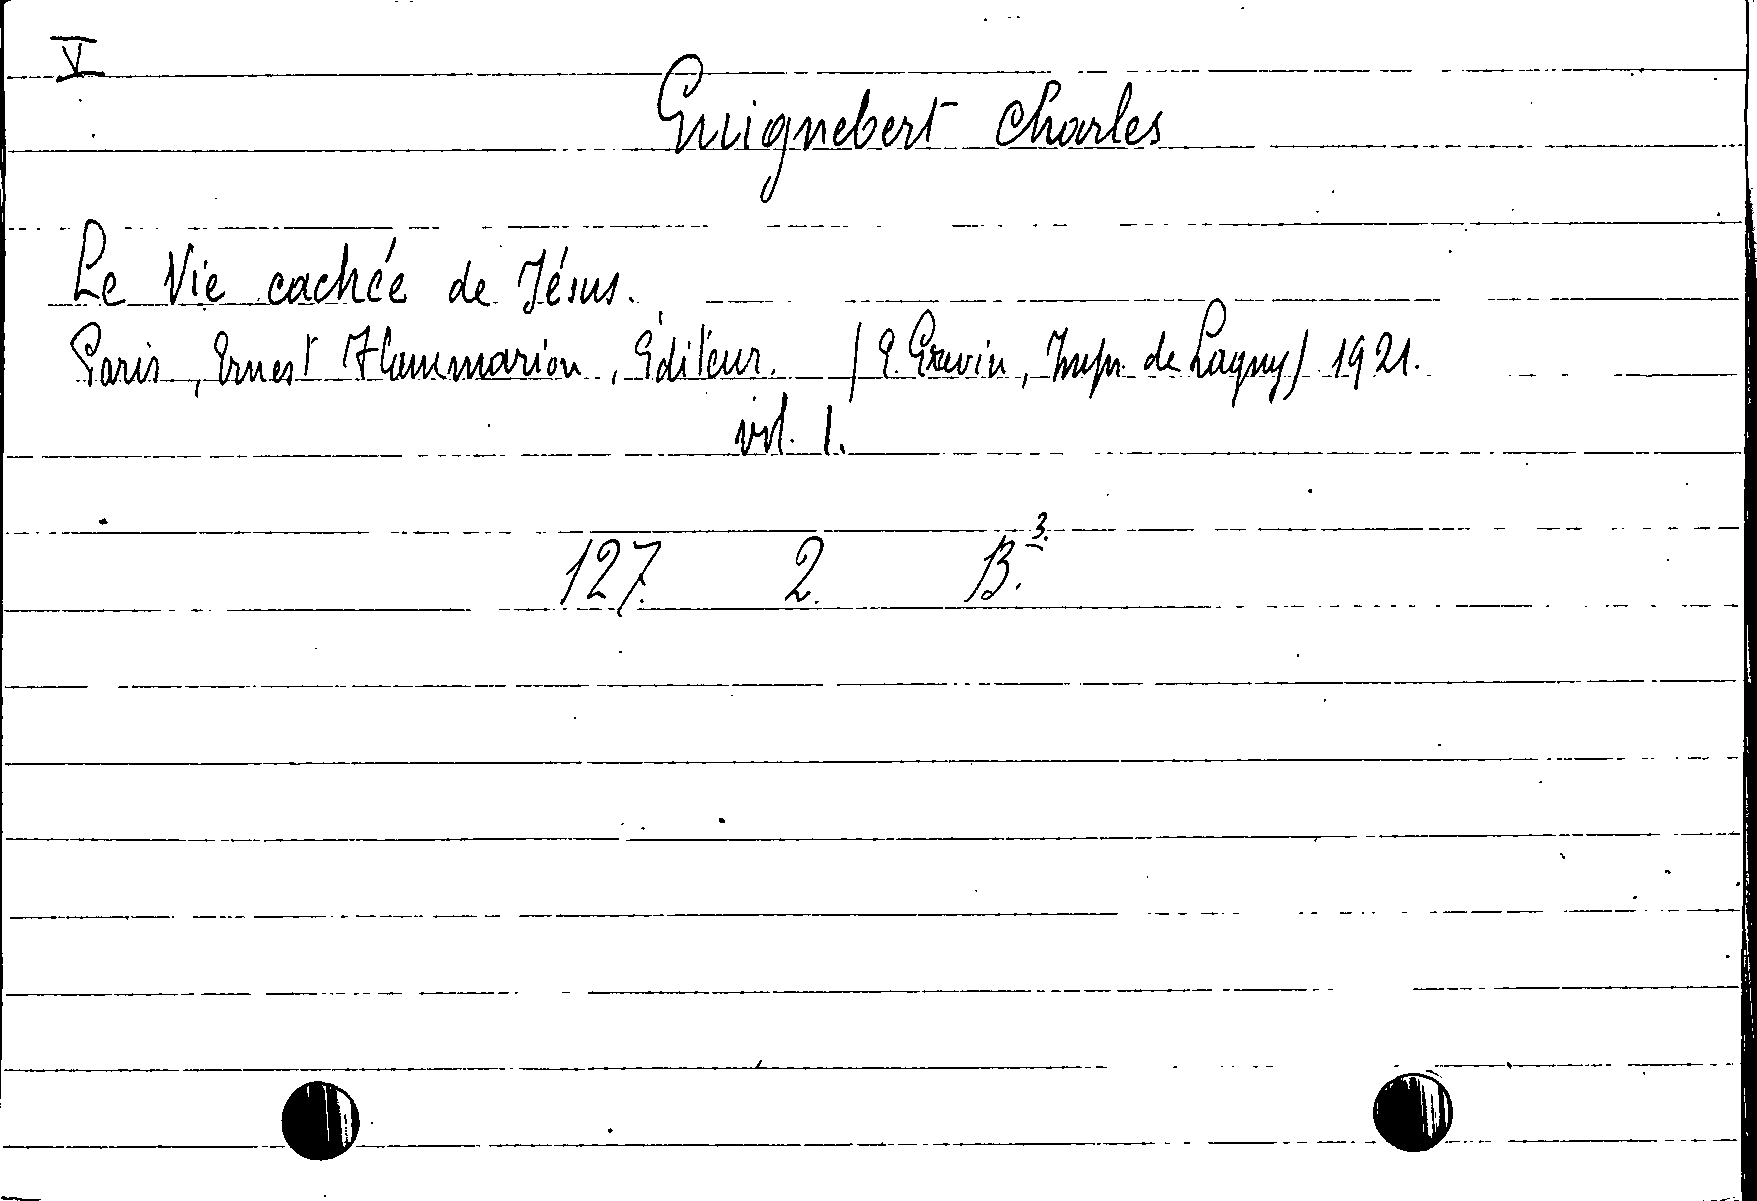 V
Guignebert Charles
Le Vie cachée de Jésus.
Paris, Ernest Flammarion, Éditeur. /E. Grevin, Impr. de Lagny/ 1921.
vol. 1.
127. 2. B.3.